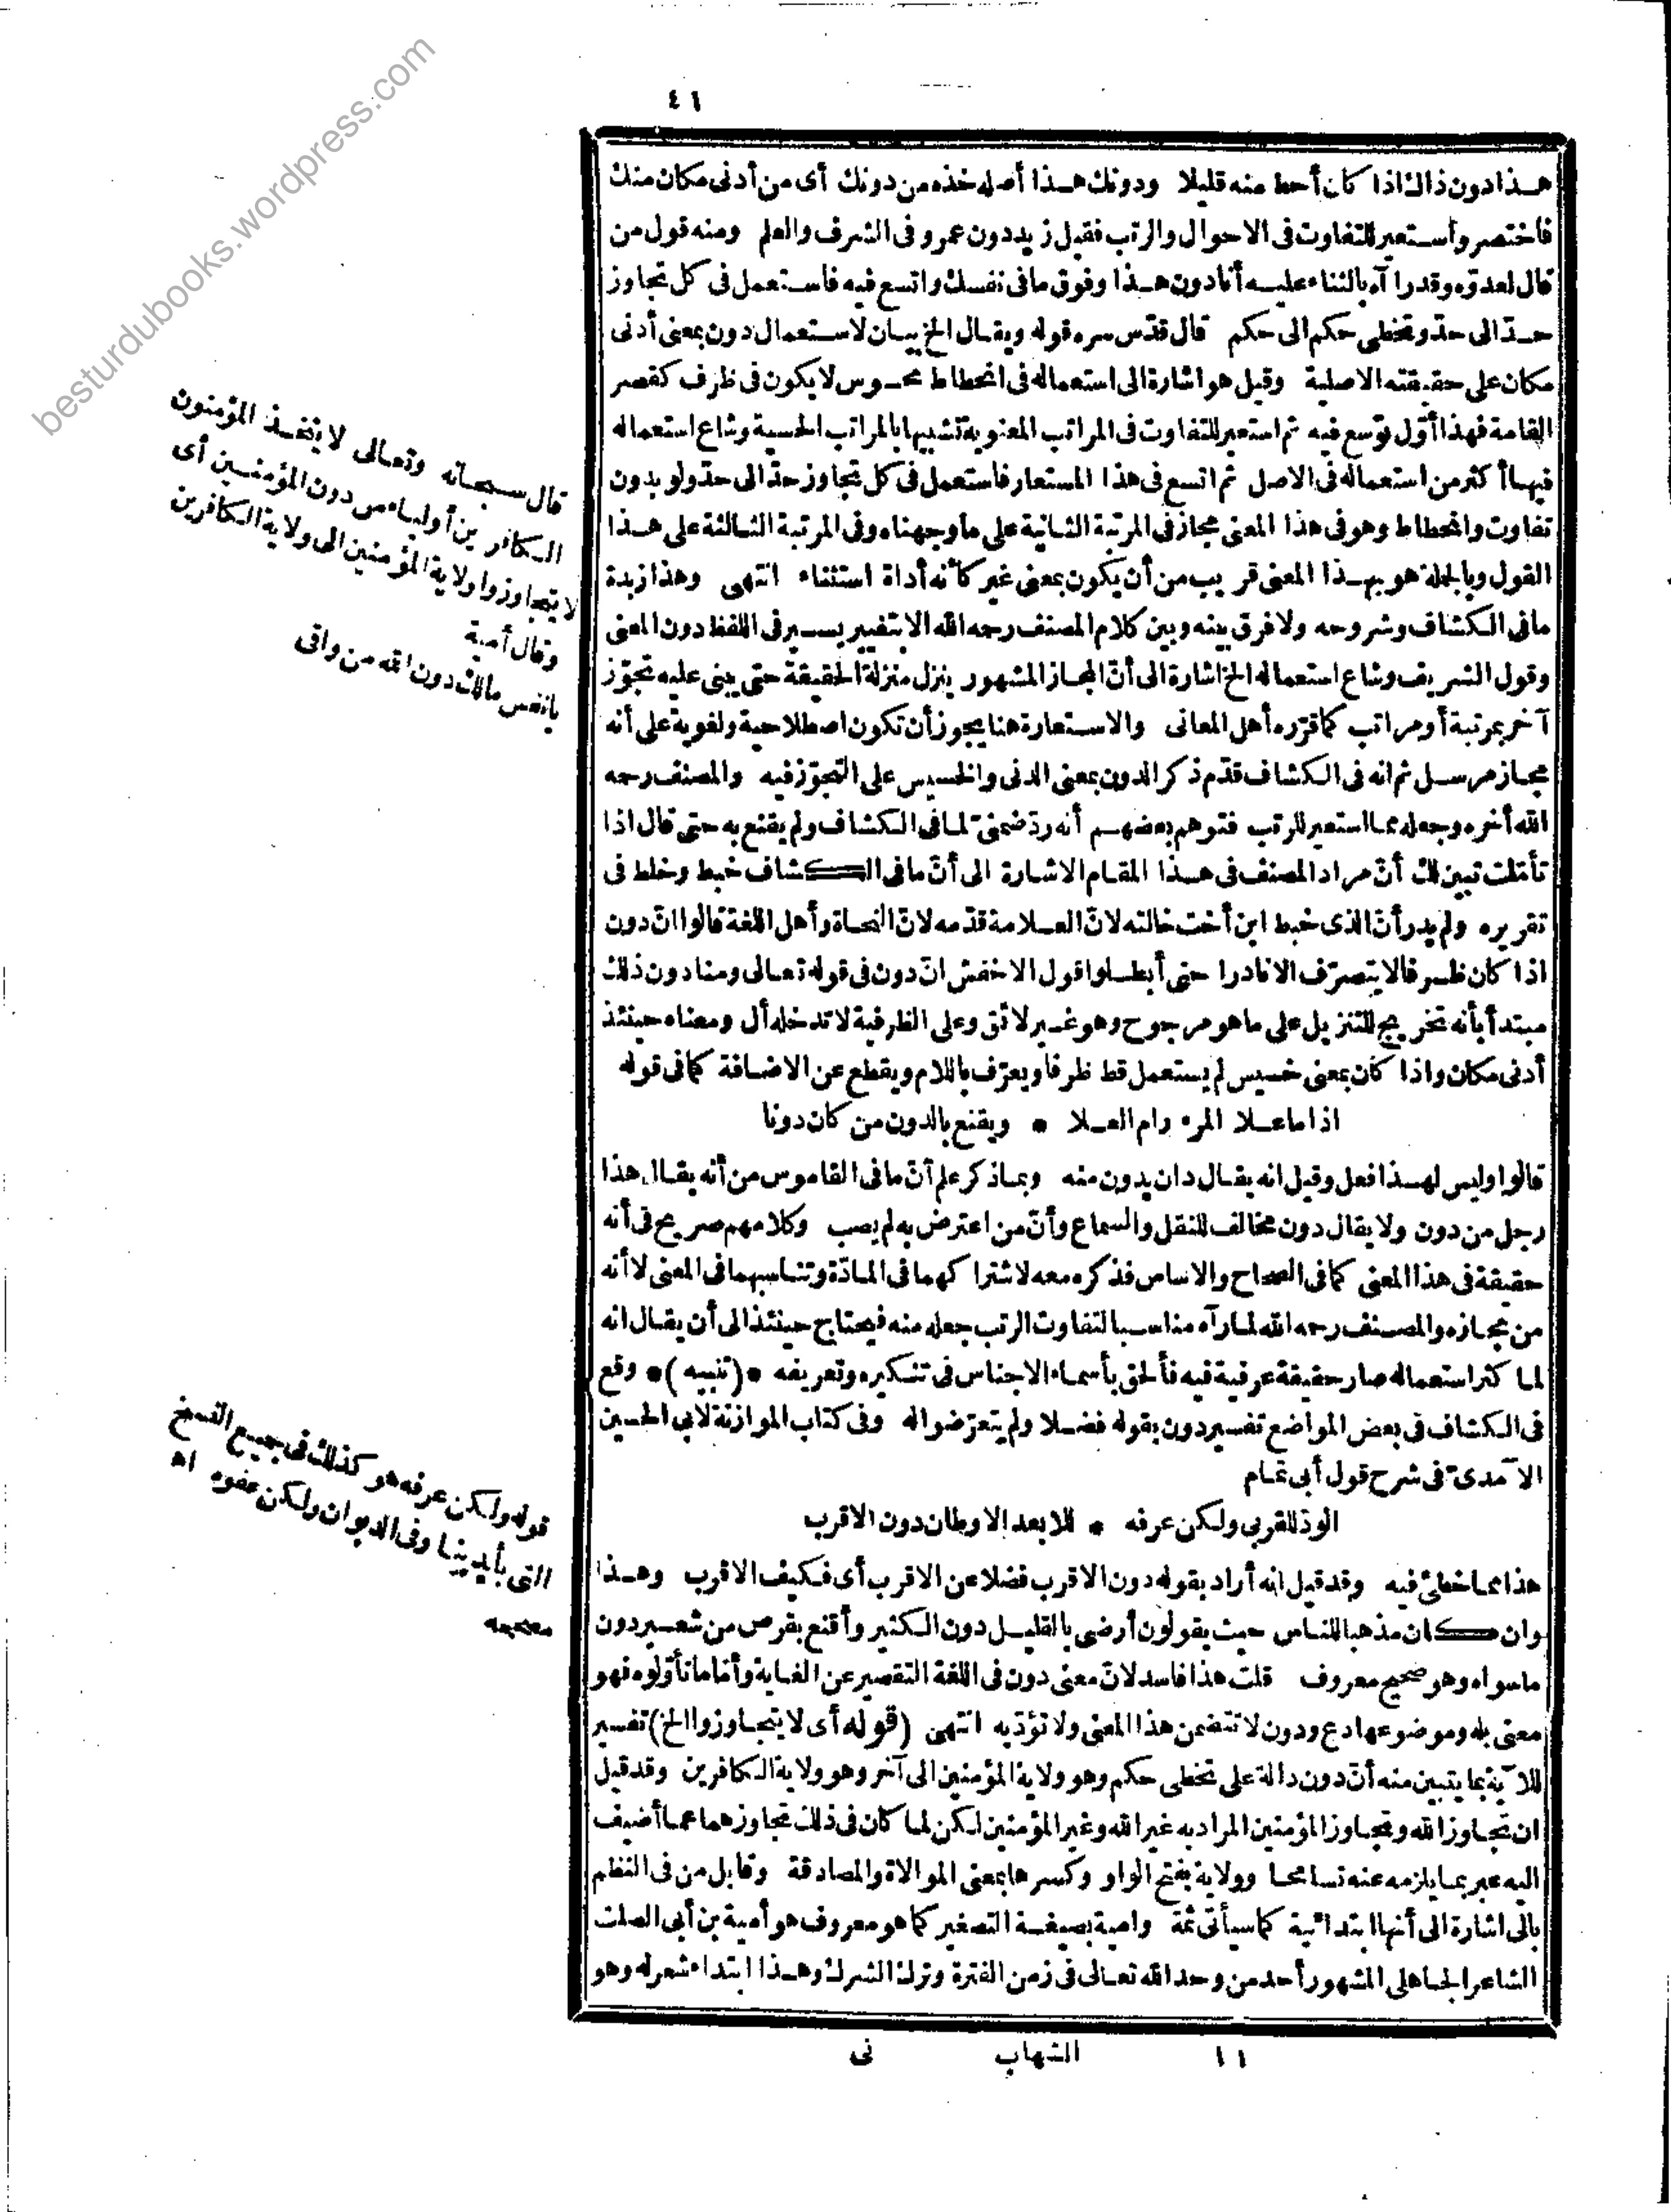 ٤١
هذا دون ذاك اذا كان أحط منه قليلا ودونك هذا أصله خذه من دونك أى من أدنى مكان منك
فاختصر وأستعير للتفاوت فى الاحوال والرتب فقيل زيد دون عمرو فى الشرف والعلم ومنه قول من
قال لعدوّه وقد را آه بالثناء عليه أنا دون هذا وفوق ما فى نفسك واتسع فيه فاستعمل فى كل تجاوز
حدّ الى حدّ وتخطى حكم الى حكم قال قدّس سره قوله ويقال الخ بيان لاستعمال دون بمعنى أدنى
مكان على حقيقته الاصلية وقيل هو اشارة الى استعماله فى انحطاط محسوس لا يكون فى ظرف كقصر
القامة فهذا أوّل توسع فيه ثم استعير للتفاوت فى المراتب المعنوية تشبيها بالمراتب الحسية وشاع استعماله
فيها أكثر من استعماله فى الاصل ثم اتسع فى هذا المستعار فاستعمل فى كل تجاوز حدّ الى حدّ ولو بدون
تفاوت وانحطاط وهو فى هذا المعنى مجاز فى المرتبة الثانية على ما وجهناه وفى المرتبة الثالثة على هذا
القول وبالجملة هو بهذا المعنى قريب من أن يكون بمعنى غير كأنه أداة استثناء انتهى وهذا زبدة
ما فى الكشاف وشروحه ولا فرق بينه وبين كلام المصنف رحمه الله الا بتغيير يسير فى اللفظ دون المعنى
وقول الشريف وشاع استعماله الخ اشارة الى أنّ المجاز المشهور ينزل منزلة الحقيقة حتى يبنى عليه تجوّز
آخر بمرتبة أو مراتب كما قرّره أهل المعانى والاستعارة هنا يجوز أن تكون اصطلاحية ولغوية على أنه
مجاز مرسل ثم انه فى الكشاف قدّم ذكر الدون بمعنى الدنى والخسيس على التجوّز فيه والمصنف رحمه
الله أخره وجعله مما استعير للرتب فتوهم بعضهم أنه ردّ ضمنىّ لما فى الكشاف ولم يقنع به حتى قال اذا
تأمّلت تبين لك أنّ مراد المصنف فى هذا المقام الاشارة الى أنّ ما فى الكشاف خبط وخلط فى
تقريره ولم يدر أنّ الذى خبط ابن أخت خالته لانّ العلامة قدّمه لانّ النحاة وأهل اللغة قالوا انّ دون
اذا كان ظرفا لا يتصرّف الا نادرا حتى أبطلوا قول الاخفش انّ دون فى قوله تعالى ومنا دون ذلك
مبتدأ بأنه تخريج للتنزيل على ما هو مرجوح وهو غير لائق وعلى الظرفية لا تدخله أل ومعناه حينئذ
أدنى مكان واذا كان بمعنى خسيس لم يستعمل قط ظرفا ويعرّف باللام ويقطع عن الاضافة كما فى قوله
اذا ما علا المرء رام العلا * ويقنع بالدون من كان دونا
قالوا وليس لهذا فعل وقيل انه يقال دان يدون منه وبما ذكر علم أنّ ما فى القاموس من أنه يقال هذا
رجل من دون ولا يقال دون مخالف للنقل والسماع وأنّ من اعترض به لم يصب وكلامهم صريح فى أنه
حقيقة فى هذا المعنى كما فى الصحاح والاساس فذكره معه لاشتراكهما فى المادّة وتناسبهما فى المعنى لا أنه
من مجازه والمصنف رحمه الله لما رآه مناسبا لتفاوت الرتب جعله منه فيحتاج حينئذ الى أن يقال انه
لما كثر استعماله صار حقيقة عرفية فيه فألحق بأسماء الاجناس فى تنكيره وتعريفه *(تنبيه)* وقع
فى الكشاف فى بعض المواضع تفسير دون بقوله فضلا ولم يتعرّضوا له وفى كتاب الموازنة لابى الحسين
الآمدىّ فى شرح قول أبى تمام
الودّ للقربى ولكن عرفه * للابعد الاوطان دون الاقرب
هذا مما خطئ فيه وقد قيل انه أراد بقوله دون الاقرب فضلا عن الاقرب أى فكيف الاقرب وهذا
وان كان مذهبا للناس حيث يقولون أرضى بالقليل دون الكثير وأقنع بقرص من شعير دون
ما سواه وهو صحيح معروف قلت هذا فاسد لانّ معنى دون فى اللغة التقصير عن الغاية وأمّا ما تأوّلوه فهو
معنى بله وموضوعها دع ودون لا تتضمن هذا المعنى ولا تؤدّيه انتهى (قوله أى لا يتجاوزوا الخ) تفسير
للآية بما يتبين منه أنّ دون دالة على تخطى حكم وهو ولاية المؤمنين الى آخر وهو ولاية الكافرين وقد قيل
ان تجاوز الله وتجاوز المؤمنين المراد به غير الله وغير المؤمنين لكن لما كان فى ذلك تجاوزهما عما أضيف
اليه عبر بما يلزمه عنه تسامحا وولاية بفتح الواو وكسرها بمعنى الموالاة والمصادقة وقابل من فى النظم
بالى اشارة الى أنها ابتدائية كما سيأتى ثمة وامية بصيغة التصغير كما هو معروف هو أمية بن أبى الصلت
الشاعر الجاهلى المشهور أحد من وحد الله تعالى فى زمن الفترة وترك الشرك وهذا ابتداء شعر له وهو
١١ الشهاب نى
قال سبحانه وتعالى لا يتخذ المؤمنون
الكافرين أولياء من دون المؤمنين أى
لا يتجاوزوا ولاية المؤمنين الى ولاية الكافرين
وقال أمية
يا نفس مالك دون الله من واقى
قوله ولكن عرفه هو كذلك فى جميع النسخ
التى بأيدينا وفى الديوان ولكن عفوه اه
مصححه
besturdubooks.wordpress.com